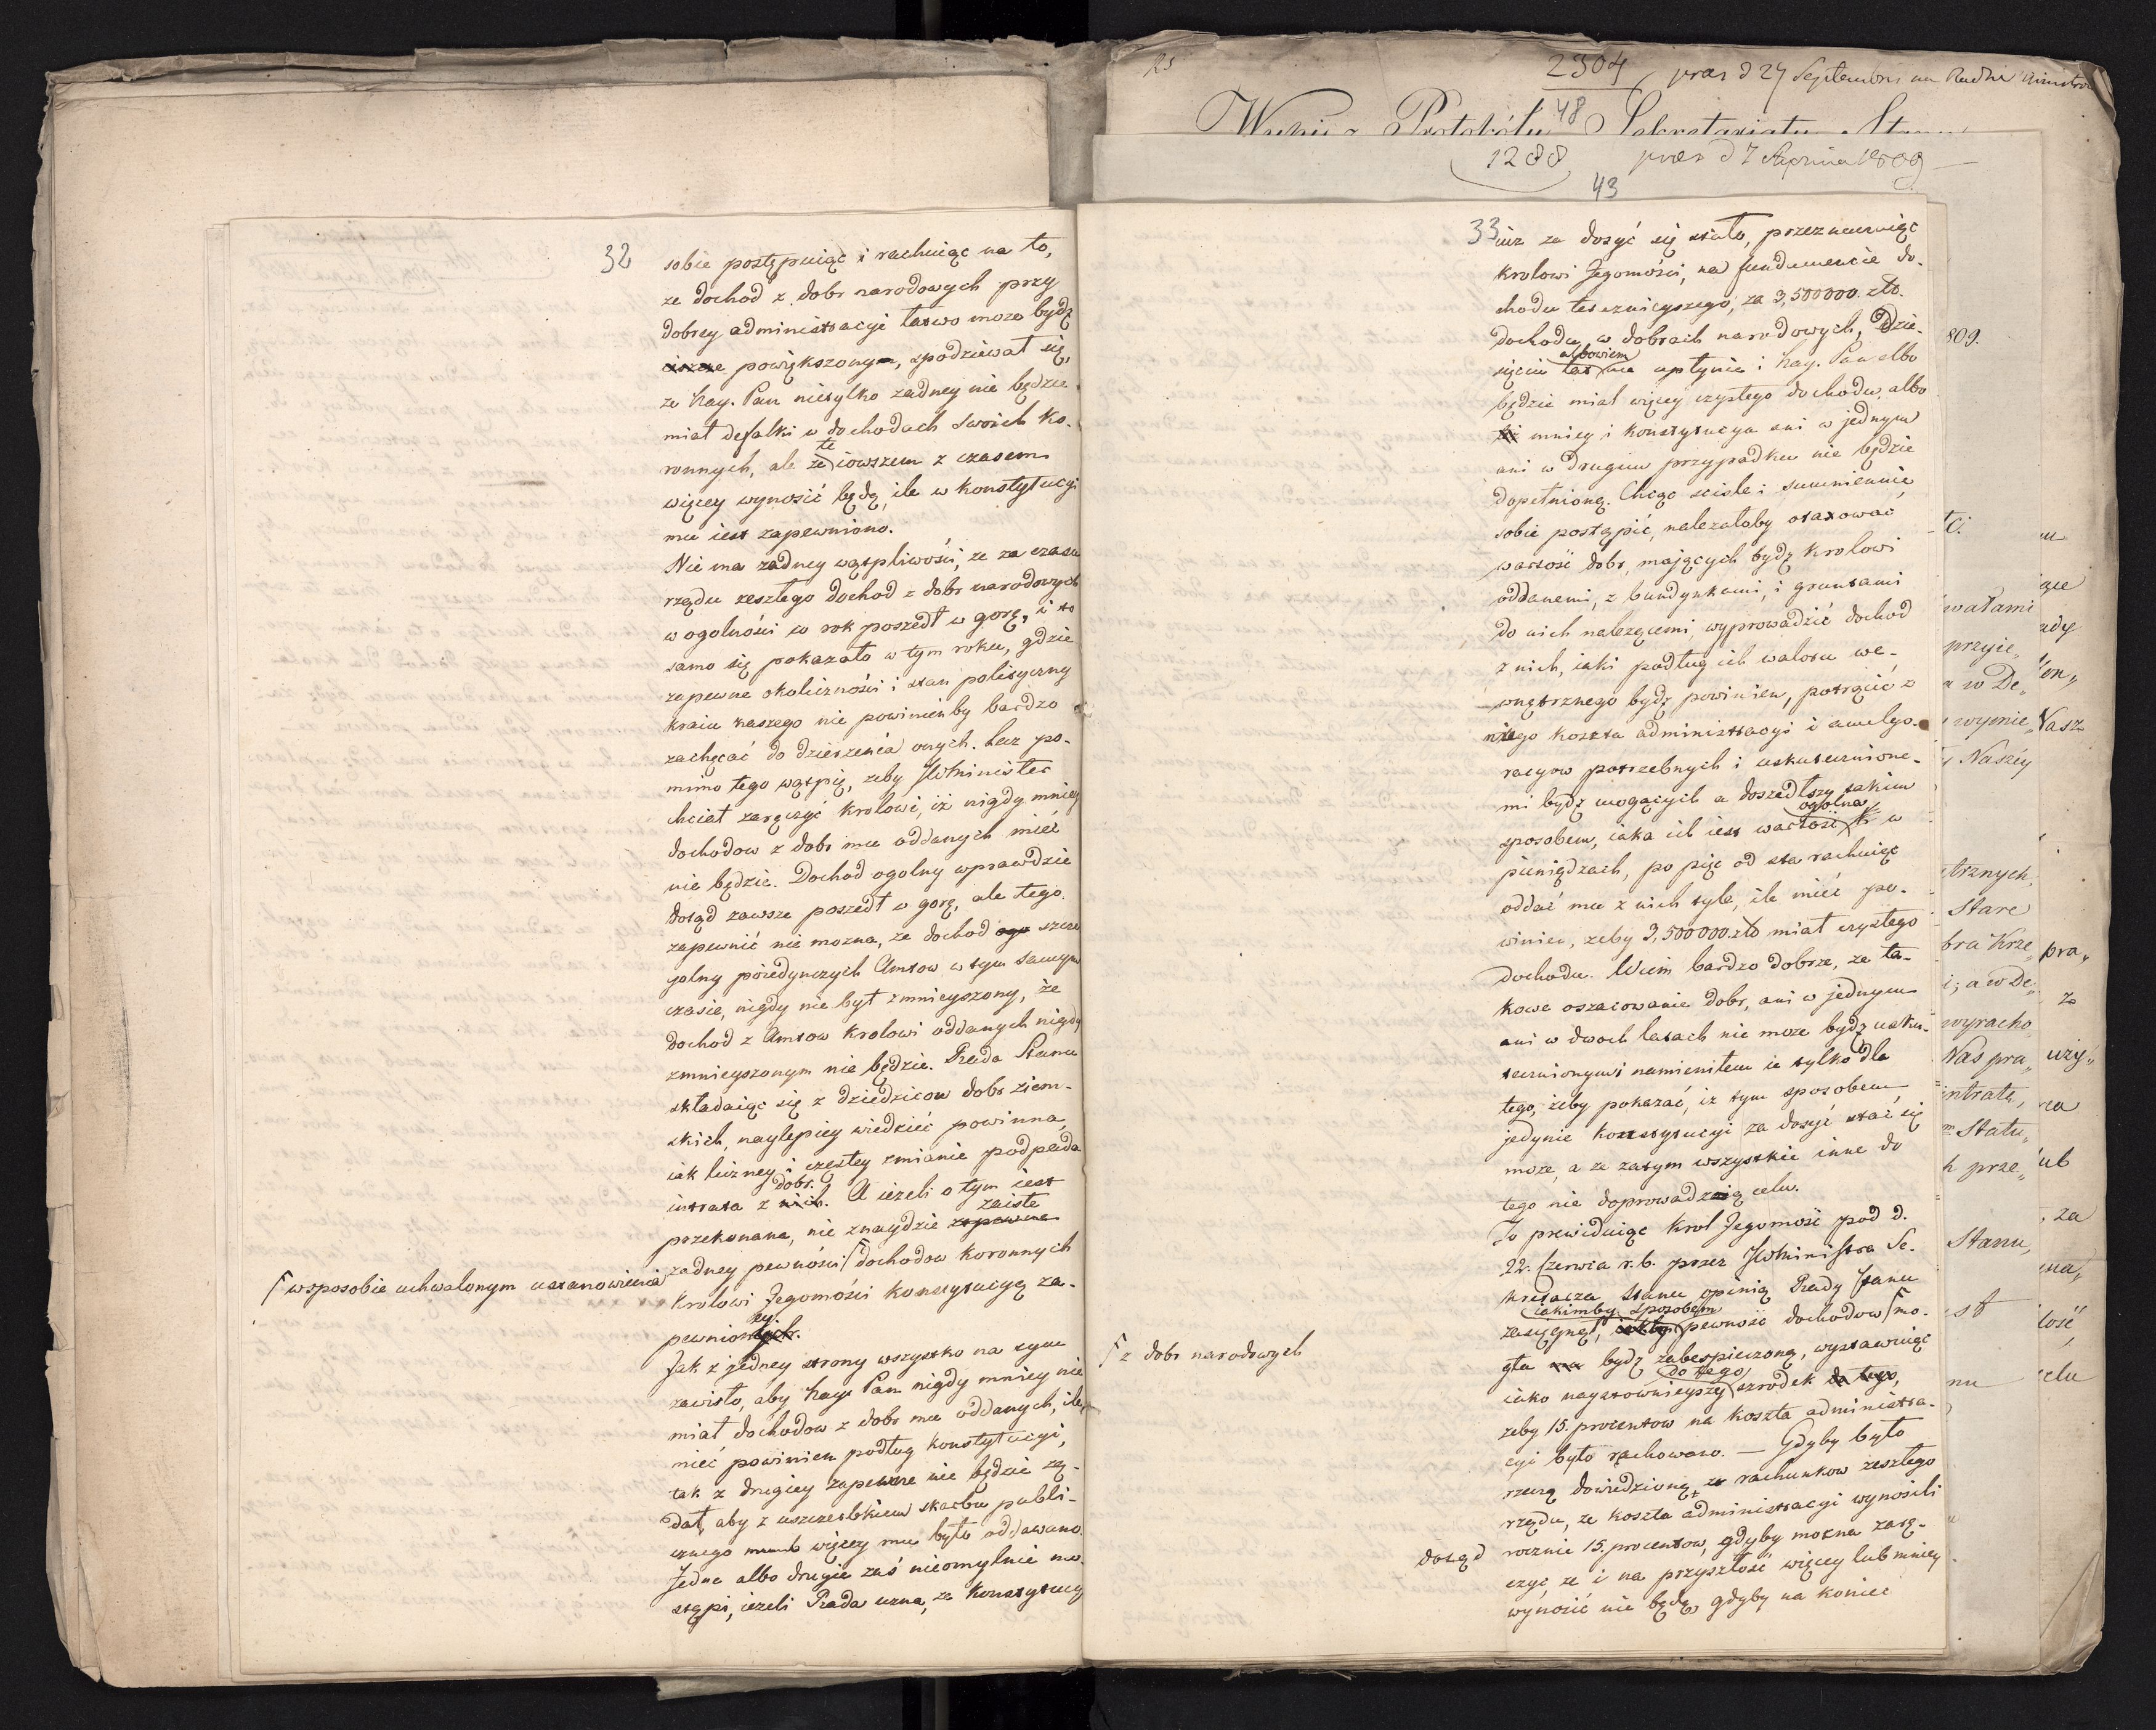 32
sobie postępuiąc i rachuiąc na to,
ze dochod z dobr narodowych przy
dobrey administracyi łatwo może bydź
powiększonym, spodziewał się,
ze Nay. Pan nietylko zadney nie będzie
miał defalki w dochodach swoich ko-
ronnych, ale ze te iowszem z czasem
więcey wynosić będą, ile w konstytucyi
mu iest zapewniono.
Nie ma zadney wątpliwości, ze za czasu
rządu zeszłego dochod z dobr narodowych
w ogolności co rok poszedł w gorę, i to
samo się pokazało w tym roku, gdzie
zapewne okoliczności i stan polityczny
kraiu naszego nie powinienby bardzo
zachęcać do dzierzenia onych. Lecz po-
mimo tego wątpię, zeby JWMinister
chciał zaręczyć krolowi, iż nigdy mniey
dochodow z dobr mu oddanych mieć
nie będzie. Dochod ogolny wprawdzie
dotąd zawsze poszedł w gorę, ale tego
zapewnić nie mozna, ze dochod szcze
golny poiedynczych Amtow w tym samym
czasie, nigdy nie był zmnieyszony, ze
dochod z Amtow krolowi oddanych nigdy
zmnieyszonym nie będzie. Rada Stanu
składaiąc się z dziedzicow dobr ziem-
skich, naylepiey wiedzieć powinna,
iak liczney i częstey zmianie podpada
intrata z nich dobr. A ieżeli o tym iest
przekonana, nie znaydzie zapewne zaiste
zadney pewności ⌈ dochodow koronnych
⌈ w sposobie uchwalonym ustanowienia
krolowi Jegomości konstytucyą za-
pewnionych ey.
Jak z jedney strony wszystko na tym
zawisło, aby Nay. Pan nigdy mniey nie
miał dochodow z dobr mu oddanych, ile
mieć powinien podług konstytucyi,
tak z drugiey zapewne nie będzie żą-
dał, aby z uszczerbkiem skarbu publi-
cznego więcey mu było oddawano.
Jedno albo drugie zaś nieomylnie na-
stąpi, ieżeli Rada uzna, ze konstytucyi
25
2304
praes d 27 Septembris na Radzie Ministrow
48
Wypis z Protokółu Sekretariatu Stanu
1288
43
33
iuz za dosyć się stało, przeznaczaiąc
krolowi Jegomości, na fundamencie do-
chodu teraznieyszego, za 3,500000 zło.
dochodu w dobrach narodowych. Dzie-
sięciu lat albowiem nie upłynie i Nay. Pan albo
będzie miał więcey czystego dochodu, albo
mniey i konstytucya ani w jednym
ani w drugim przypadku nie będzie
dopełnioną. Chcąc scisle i sumiennie
sobie postąpić, nalezałoby otaxować
wartość dobr, mających bydź krolowi
oddanemi, z budynkami, i gruntami
do nich nalezącemi, wyprowadzić dochod
z nich, iaki podług ich waloru we-
wnętrznego bydź powinien, potrącić z
niego koszta administracyi i amelyo-
racyow potrzebnych i uskutecznione-
mi bydź mogących a doszedłszy takim
sposobem, iaka ich iest wartość ogolna w
pieniądzach, po pięć od sta rachuiąc
oddać mu z nich tyle, ile mieć po-
winien, zeby 3,500000 zło miał czystego
dochodu. Wiem bardzo dobrze, ze ta-
kowe oszacowanie dobr, ani w jednym
ani w dwoch latach nie może bydź usku-
tecznionym; namieniłem ie tylko dla
tego, żeby pokazać, iż tym sposobem
jedynie konstytucyi za dosyć stać się
może, a ze zatym wszystkie inne do
tego nie doprowadzaią celu.
To przewiduiąc Krol Jegomość pod d.
22. Czerwca r. b. przez JWMinistra Se-
kretarza Stanu opinią Rady Stanu
zasięgnął, iakimby sposobem pewność dochodow ⌈ mo-
⌈ z dobr narodowych
gła bydź zabespieczoną, wystawuiąc
iako naystownieyszy do tego szrodek do tego,
zeby 15. procentow na koszta administra-
cyi było rachowano. — Gdyby było
rzeczą dowiedzioną z rachunkow zeszłego
rządu, ze koszta administracyi wynosili
dotąd rocznie 15. procentow, gdyby mozna zarę-
czyć, ze i na przyszłość więcey lub mniey
wynosić nie będą, gdyby na koniec
809.
wałami
przyie„
a w De„
wymie„
Naszéy
trznych,
Stare
bra Krze„
i; a w De„
wyracho„
Nas pra„
intrata,
Statu„
h prze„
Stanu,
Nasz
pra„
uży„
ub
za
celu